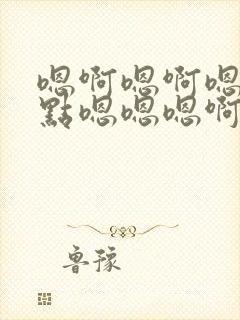 嗯啊嗯啊嗯
點嗯嗯嗯啊
鲁豫